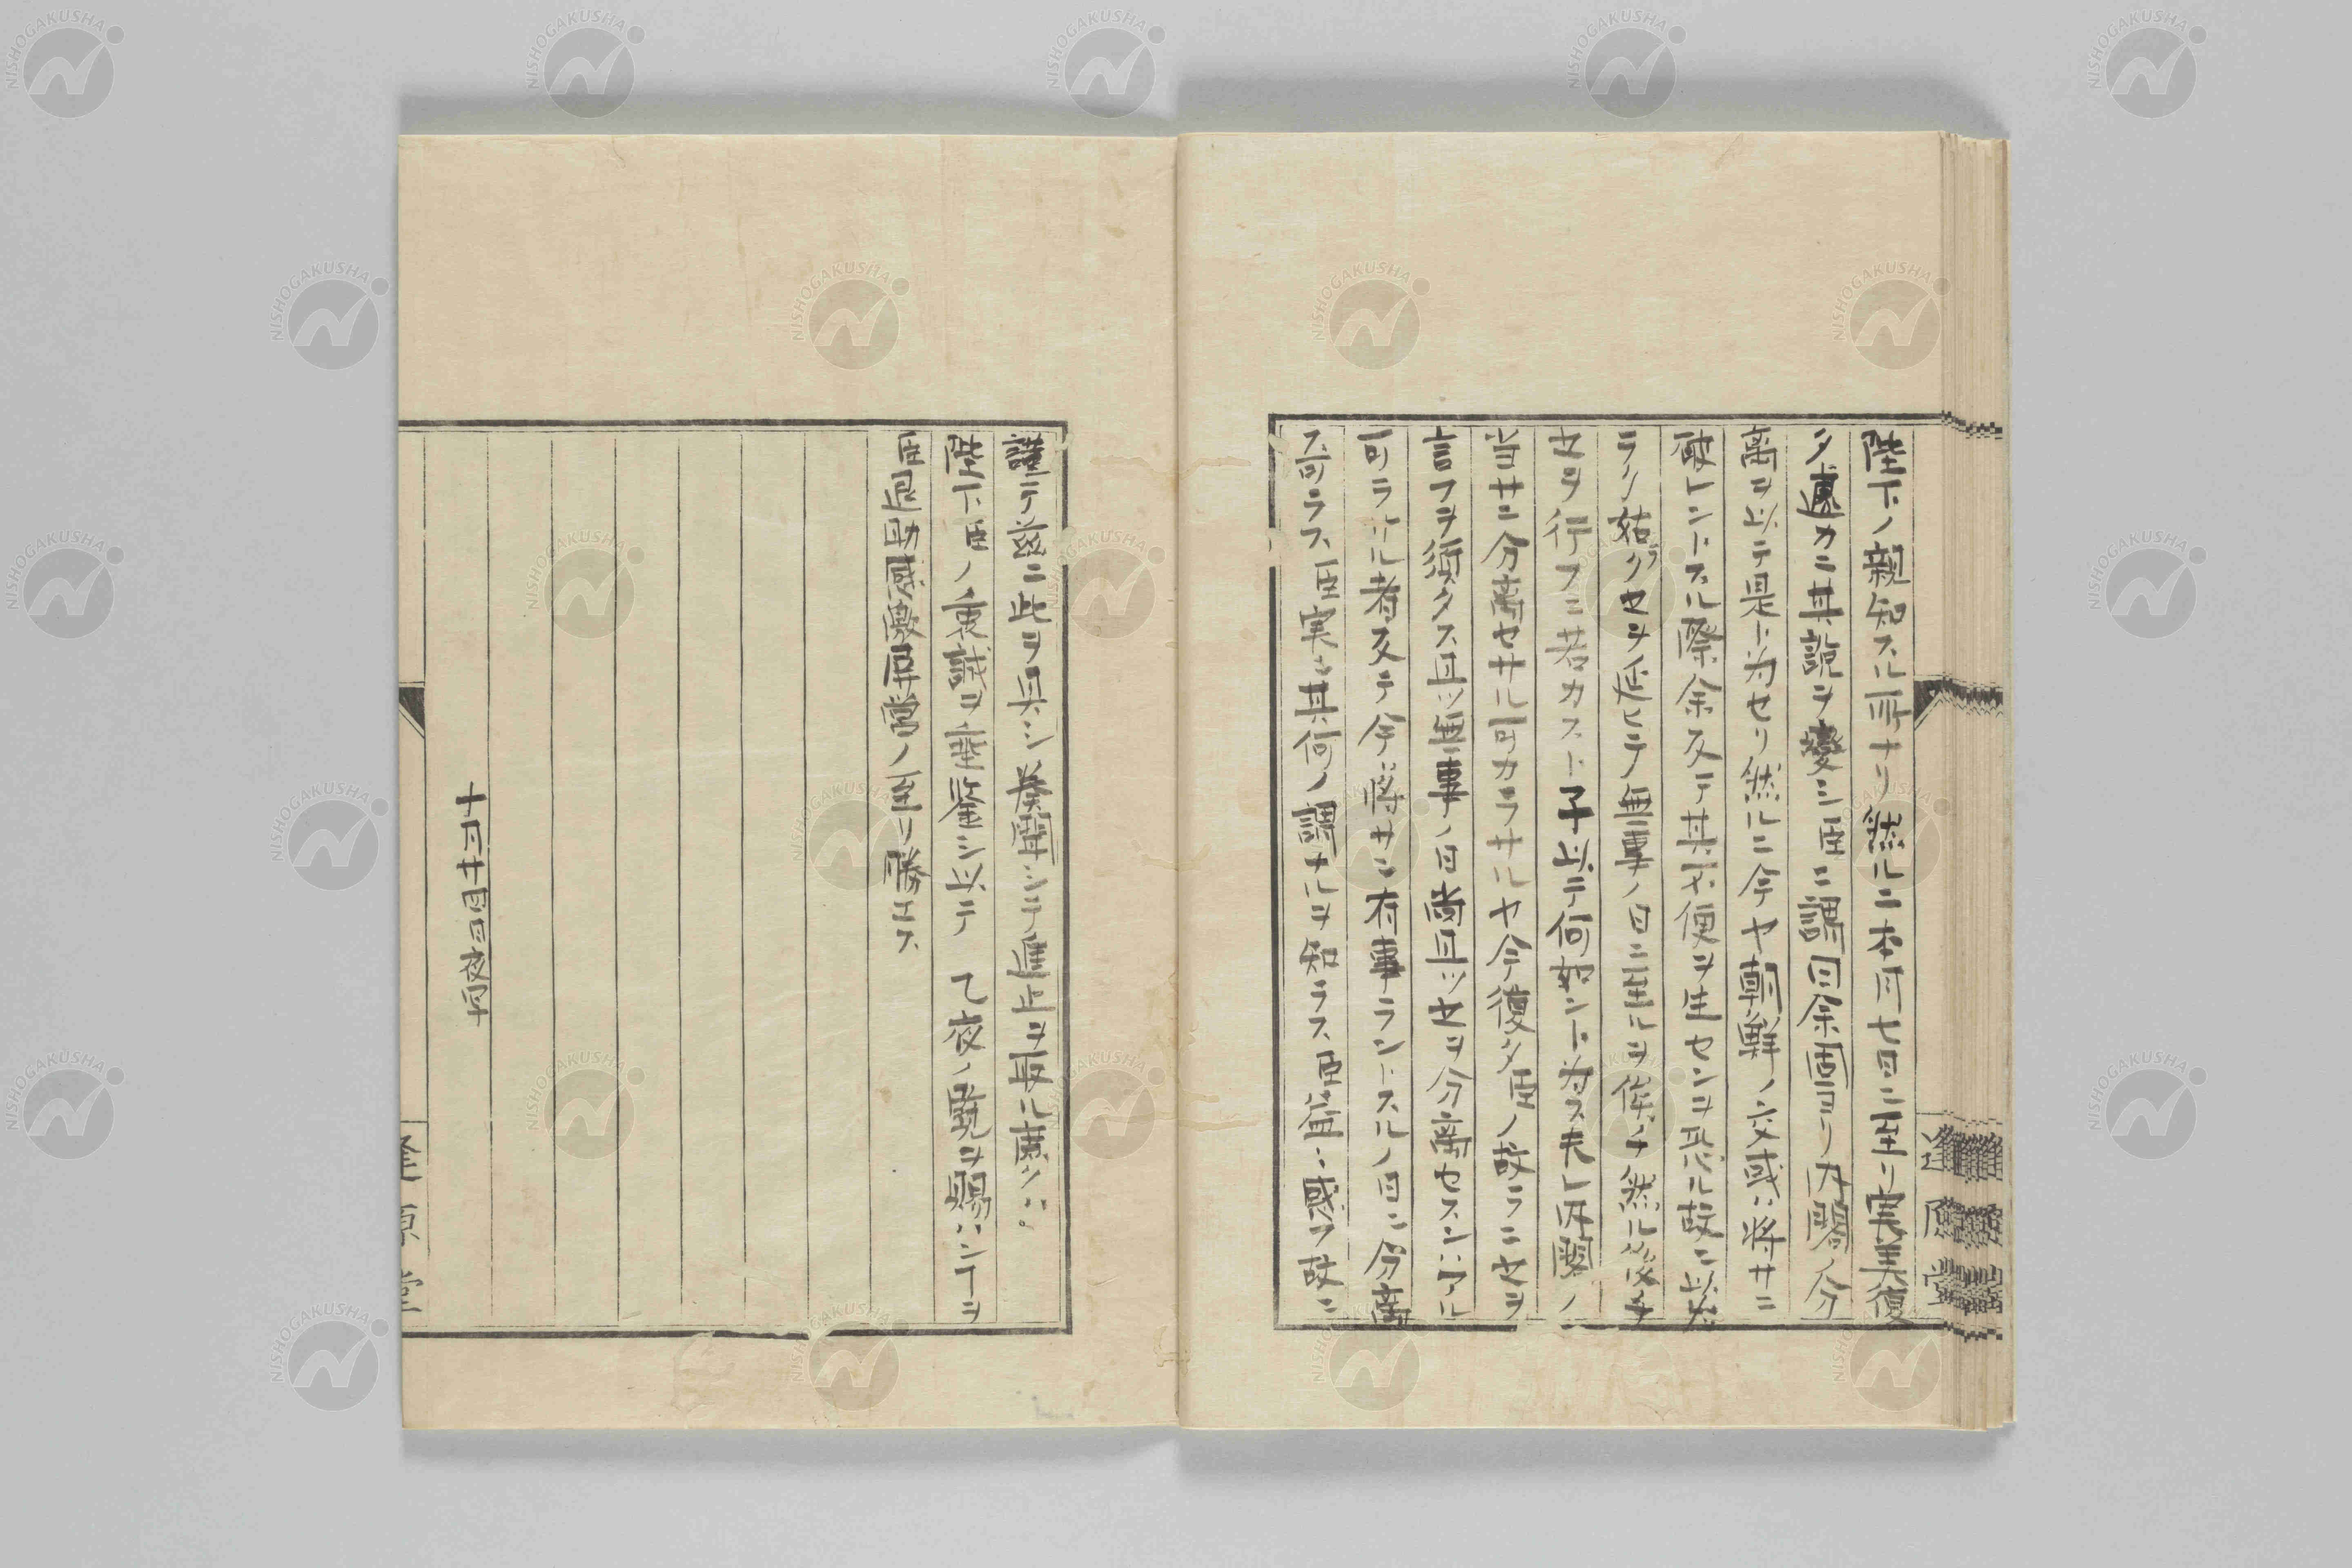 陛下ノ親知スル所ナリ然ルニ本月七日ニ至リ実美復
タ遽カニ其説ヲ變シ臣ニ謂曰余固ヨリ内閣ノ分
离ヲ以テ是ト为セリ然ルニ今ヤ朝鮮ノ交或ハ将サニ
破レントスル際余反テ其不便ヲ生センヲ恐ル故ニ以为
ラク姑ラク之ヲ延ヒテ無事ノ日ニ至ルヲ俟チ然ル後チ
之ヲ行フニ若カスト子以テ何如ント为スト夫レ内閣ノ
当サニ分离セサル可カラサルヤ今復タ臣ノ故ラニ之ヲ
言フヲ須タス且ツ無事ノ日尚且ツ之ヲ分离セスンハアル
可ラサル者反テ今将サニ有事ラントスルノ日ニ分离
ス可ラス臣実ニ其何ノ謂ナルヲ知ラス臣益〻惑フ故ニ
謹テ茲ニ此ヲ具シ奏聞シテ進止ヲ取ル庶クハ。
陛下臣ノ衷誠ヲ垂鑒シ以テ 乙夜ノ覧ヲ賜ハンヿヲ
臣退助感激屏営ノ至リ勝エス
十月廿四日夜写
逢原堂
逢原堂
NISHOGAKUSHA